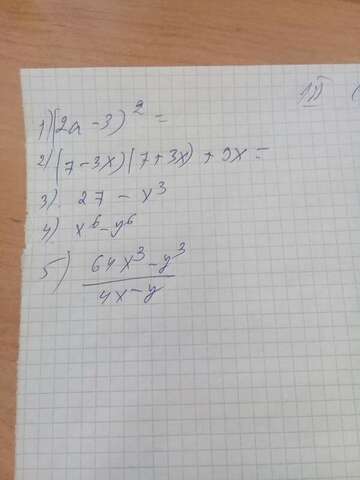 1) (2a - 3)² =
2) (7 - 3x)(7 + 3x) + 9x =
3). 27 - x³
4) x⁶ - y⁶
5) (64x³ - y³)/(4x - y)